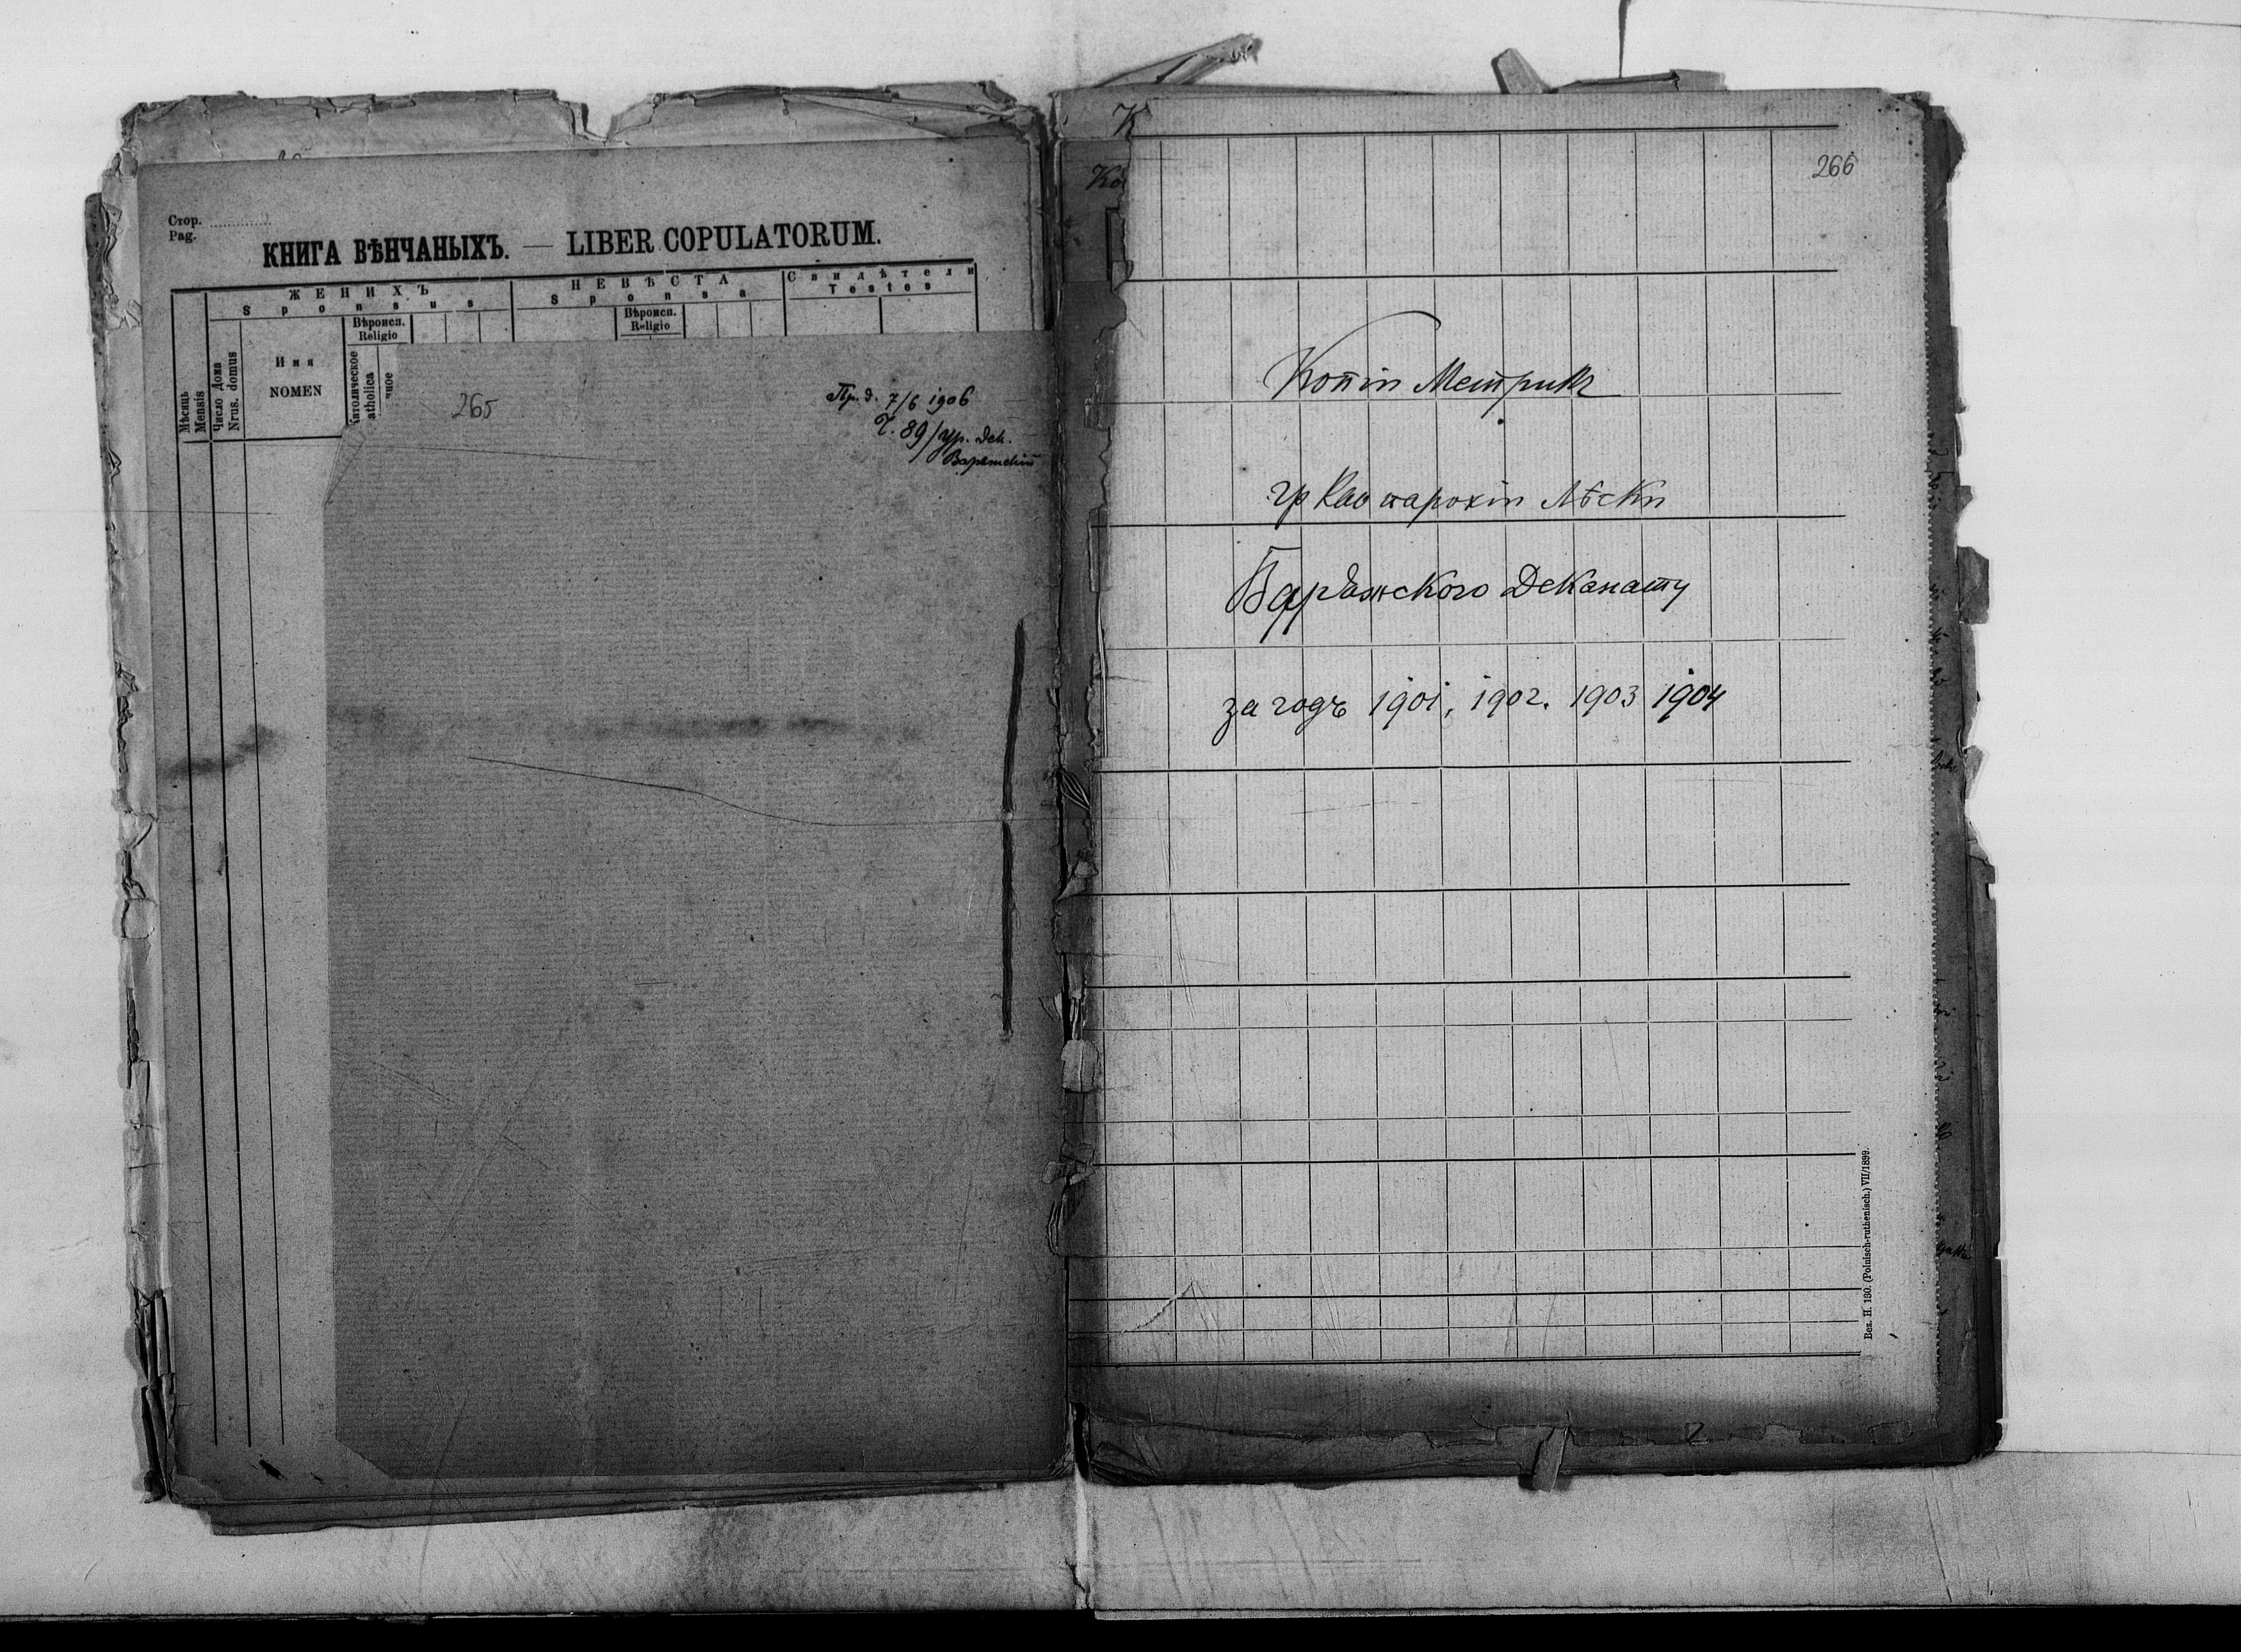 Стор.
Pag.
КНИГА ВѢНЧАНЫХЪ. — LIBER COPULATORUM.
ЖЕНИХЪ
Sponsus
НЕВѢСТА
Sponsa
Свидѣтели
Testes
Вѣроисп.
Religio
Вѣроисп.
Religio
Мѣсяць
Mensis
Число Дома
Nrus. domus
Имя
NOMEN
Католическое
atholica
чное
265
Пр. д. 7/6 1906
Ч. 89/ур. дек.
К
266
Копіи Метрик
гр Кат парохіи Лѣски
Варяжского Деканату
за годъ 1901, 1902. 1903 1904
Bez. H. 130. (Polnisch-ruthenisch.) VII/1899.